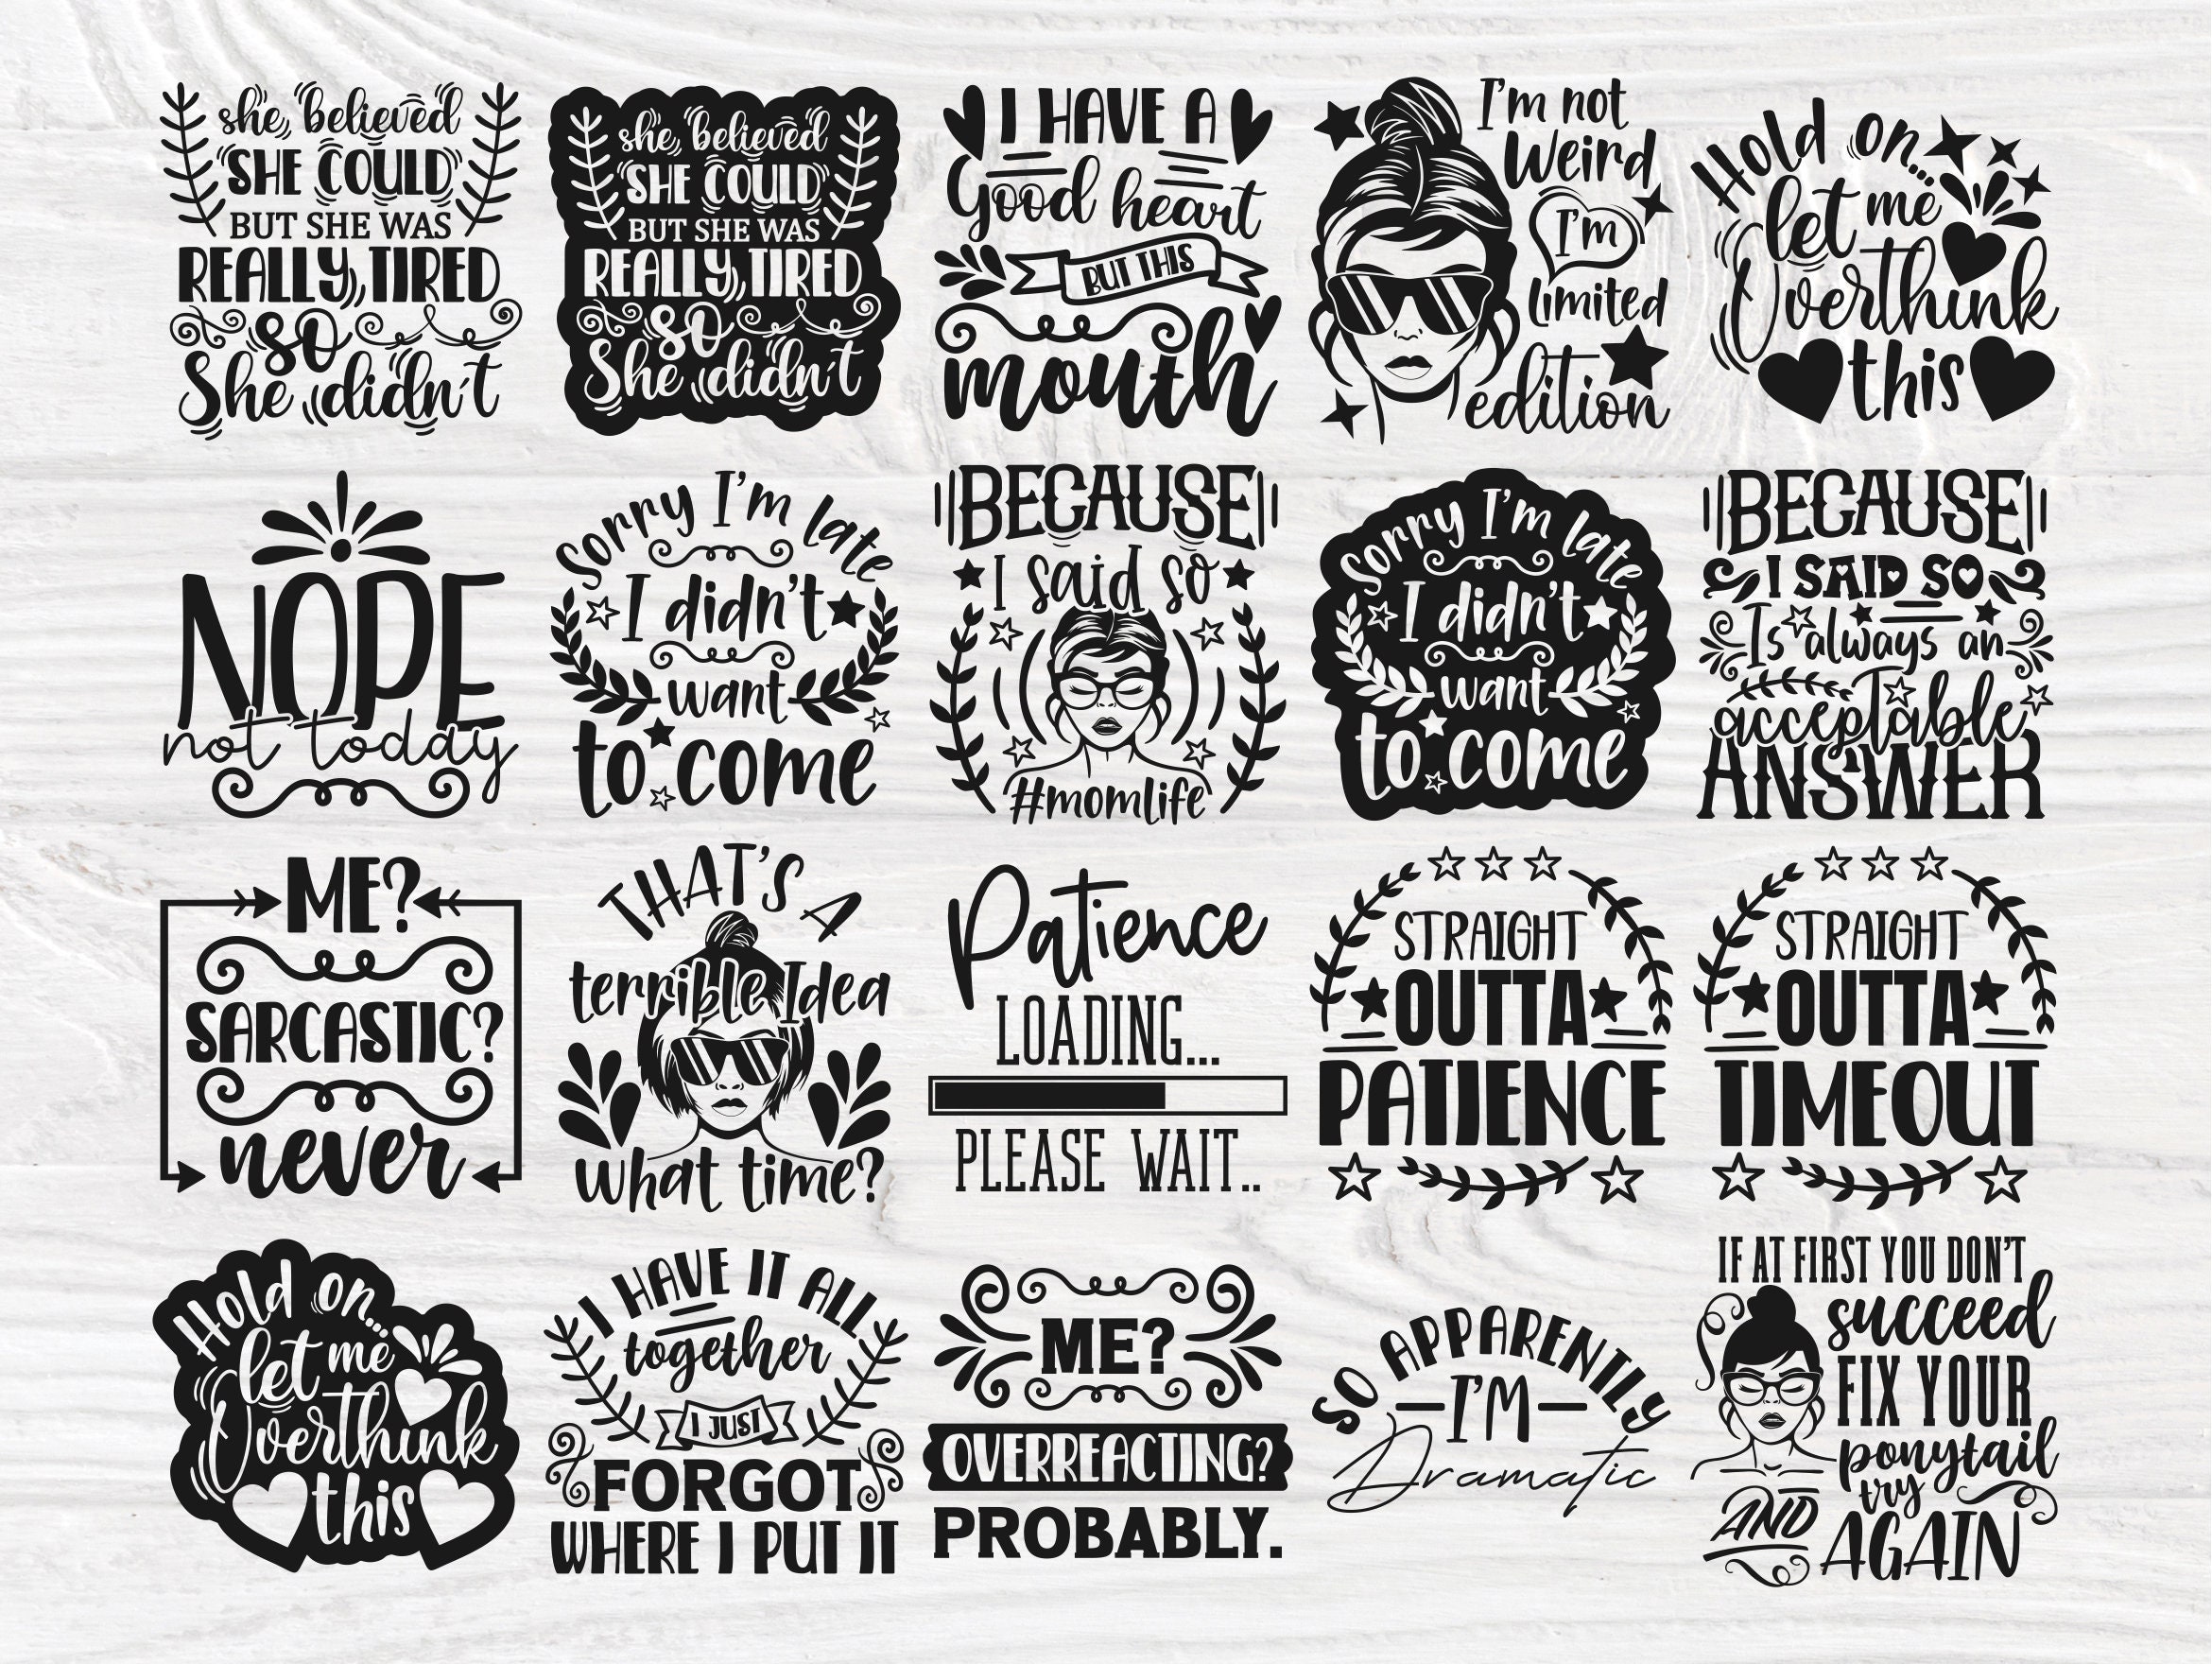 she believed
SHE COULD
BUT SHE WAS
REALLY TIRED
so
She didn't
she believed
SHE COULD
BUT SHE WAS
REALLY TIRED
so
She didn't
I HAVE A
Good heart
BUT THIS
mouth
I'm not
Weird
I'm
limited
edition
Hold on...
let me
Overthink
this
NOPE
not today
Sorry I'm late
I didn't
want
to come
BECAUSE
I said so
#momlife
Sorry I'm late
I didn't
want
to come
BECAUSE
I SAID SO
Is always an
acceptable
ANSWER
ME?
SARCASTIC?
never
THAT'S A
terrible Idea
what time?
Patience
LOADING...
PLEASE WAIT..
STRAIGHT
OUTTA
PATIENCE
STRAIGHT
OUTTA
TIMEOUT
Hold on...
let me
Overthink
this
I HAVE IT ALL
together
I JUST
FORGOT
WHERE I PUT IT
ME?
OVERREACTING?
PROBABLY.
SO APPARENTLY
I'M
Dramatic
IF AT FIRST YOU DON'T
succeed
FIX YOUR
ponytail
AND try
AGAIN